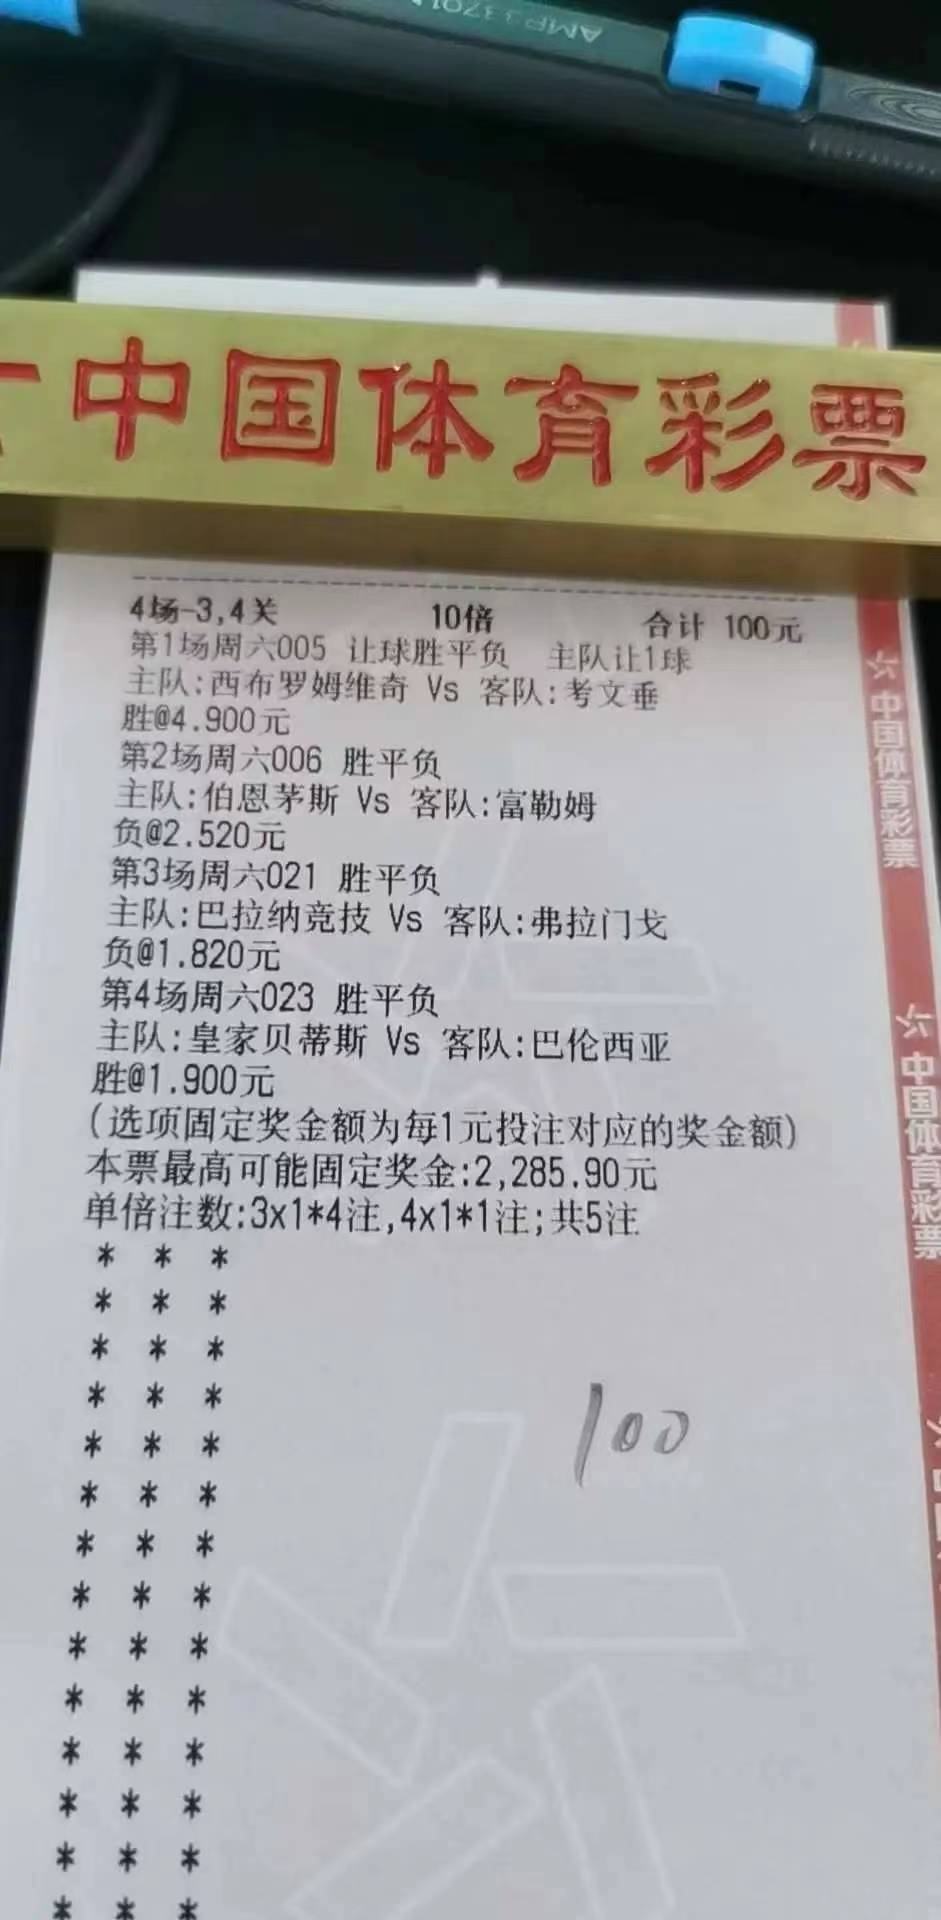 AMP 3370
中国体育彩票
4场-3,4关 10倍 合计 100元
第1场周六005 让球胜平负 主队让1球
主队:西布罗姆维奇 Vs 客队:考文垂
胜@4.900元
第2场周六006 胜平负
主队:伯恩茅斯 Vs 客队:富勒姆
负@2.520元
第3场周六021 胜平负
主队:巴拉纳竞技 Vs 客队:弗拉门戈
负@1.820元
第4场周六023 胜平负
主队:皇家贝蒂斯 Vs 客队:巴伦西亚
胜@1.900元
(选项固定奖金额为每1元投注对应的奖金额)
本票最高可能固定奖金:2,285.90元
单倍注数:3x1*4注,4x1*1注;共5注
* * *
* * *
* * *
* * *
* * *
* * *
* * *
* * *
* * *
* * *
* * *
* * *
* * *
* * *
100
中国体育彩票
中国体育彩票